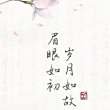 岁月如故
眉眼如初